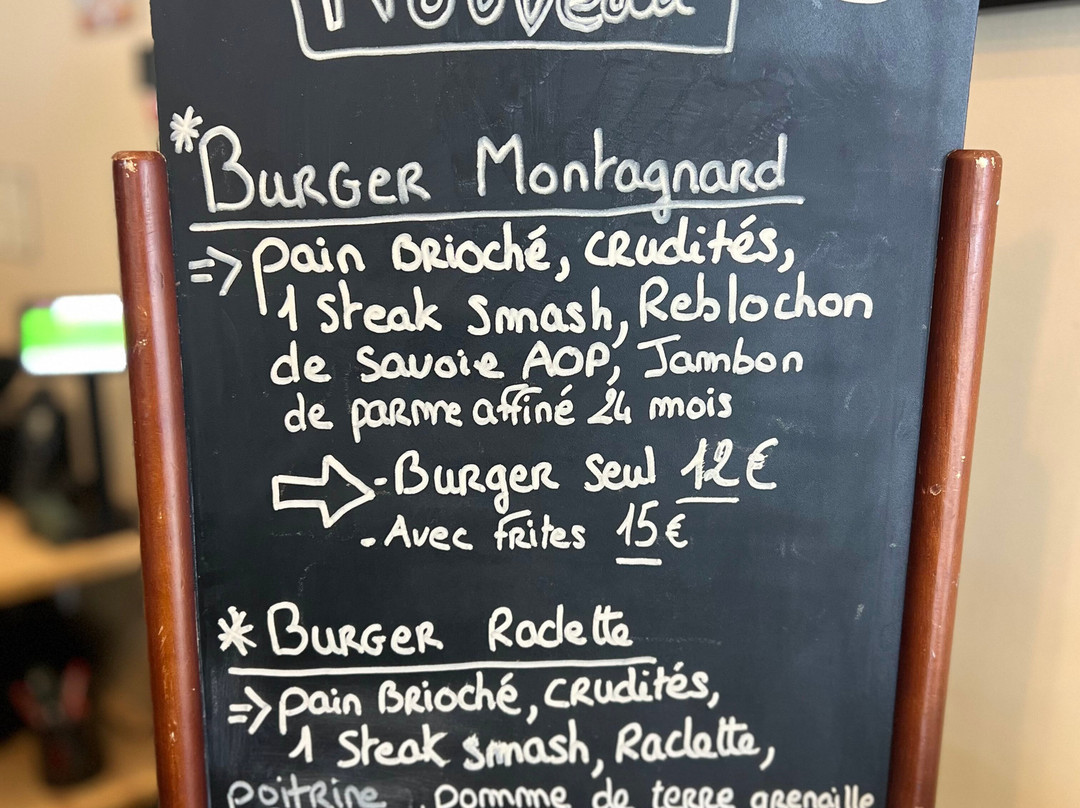 Nouveau
*Burger Montagnard
=> pain Brioché, crudités,
1 steak smash, Reblochon
de Savoie AOP, Jambon
de parme affiné 24 mois
- Burger seul 12€
- Avec frites 15€
* Burger Raclette
=> pain Brioché, crudités,
1 steak smash, Raclette,
poitrine , pomme de terre grenaille